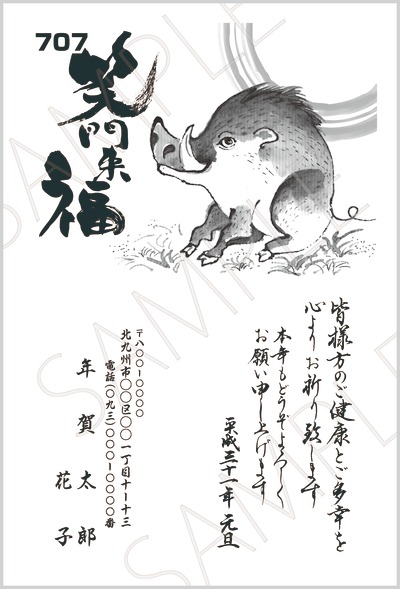 707
笑門来福
皆様方のご健康とご多幸を
心よりお祈り致します
本年もどうぞよろしく
お願い申し上げます
平成三十一年 元旦
〒八〇〇-〇〇〇〇
北九州市〇〇区〇〇一丁目十-十三
電話(〇九三)〇〇〇〇-〇〇〇〇番
年賀 太郎
花子
SAMPLE